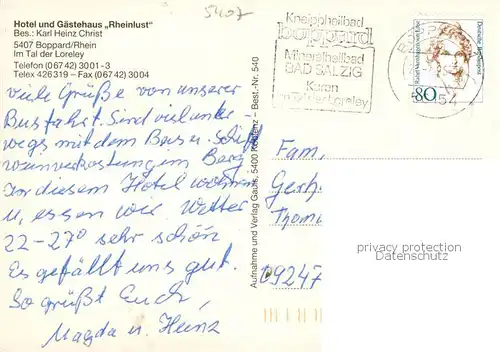 5407
Hotel und Gästehaus „Rheinlust"
Bes.: Karl Heinz Christ
5407 Boppard/Rhein
Im Tal der Loreley
Telefon (06742) 3001-3
Telex 426319 – Fax (06742) 3004
Viele Grüße von unserer
Busfahrt. Sind viel unter-
wegs mit dem Bus u. Schiff
Weinverkostung im Berg
In diesem Hotel wohnen
u. essen wir. Wetter
22-27° sehr schön
Es gefällt uns gut.
So grüßt Euch,
Magda u. Heinz
Aufnahme und Verlag Gauls, 5400 Koblenz – Best.-Nr. 540
Kneippheilbad
boppard
Mineralheilbad
BAD SALZIG
Kuren
im Tal der Loreley
BOPPARD
54
80
Deutsche Bundespost
Fam.
Gerh
Thom
09247
privacy protection
Datenschutz